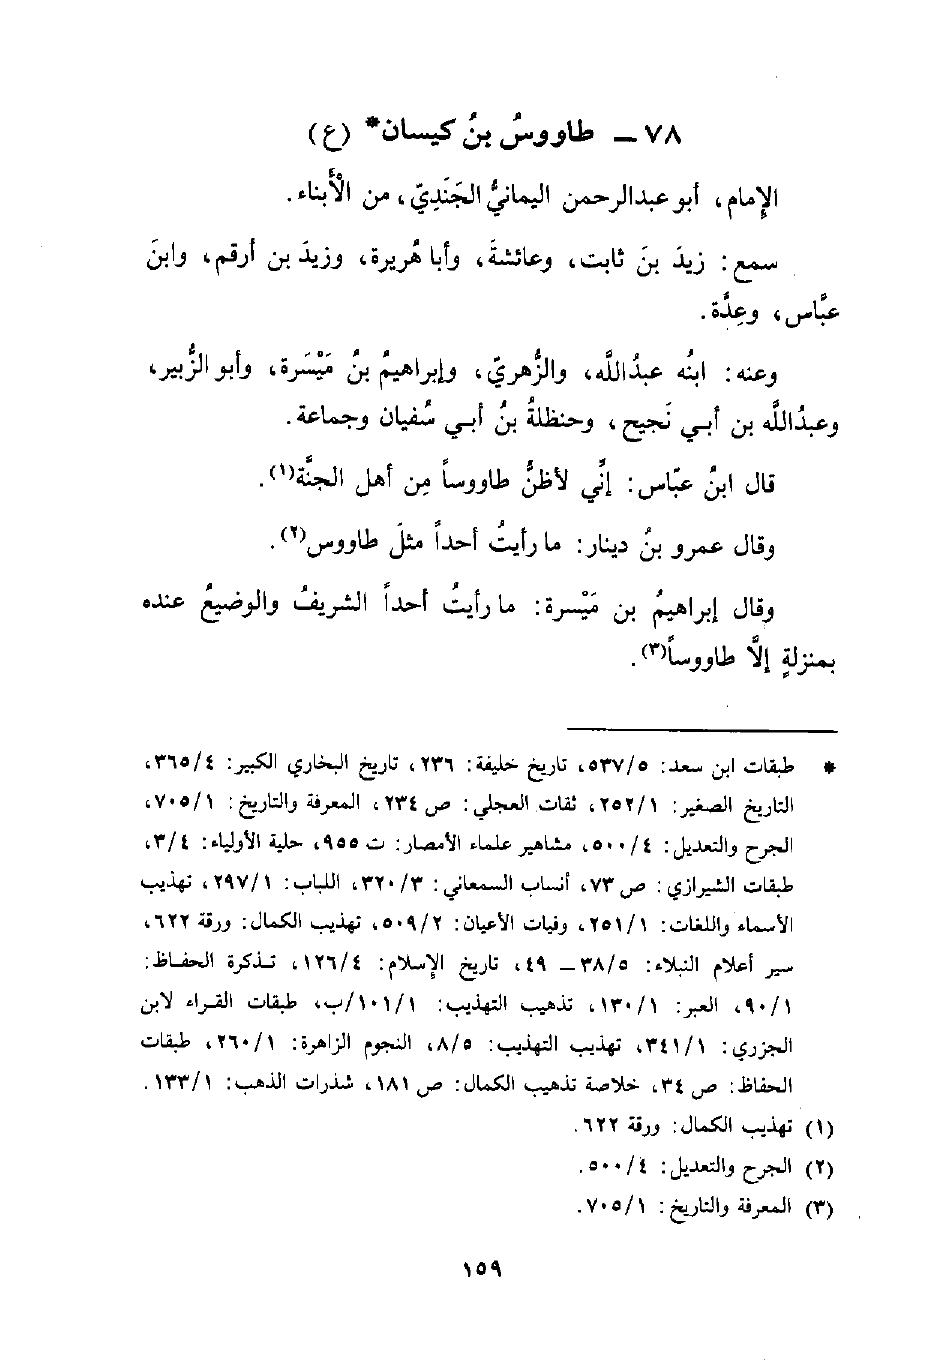 ٧٨ ــ طاووسُ بنُ كيسان* (ع)
الإِمام، أبو عبدالرحمن اليمانيُّ الجَنَدِيّ، من الأَبناء.
سمع: زيدَ بنَ ثابت، وعائشةَ، وأبا هُريرة، وزيدَ بن أرقم، وابنَ
عبَّاس، وعِدَّة.
وعنه: ابنُه عبدُاللَّه، والزُّهريّ، وإبراهيمُ بنُ مَيْسَرة، وأبو الزُّبير،
وعبدُاللَّه بن أبـي نَجيح، وحنظلةُ بنُ أبـي سُفيان وجماعة.
قال ابنُ عبّاس: إنِّي لأظنُّ طاووساً مِن أهل الجنَّة(١).
وقال عمرو بنُ دينار: ما رأيتُ أحداً مثلَ طاووس(٢).
وقال إبراهيمُ بن مَيْسرة: ما رأيتُ أحداً الشريفُ والوضيعُ عنده
بمنزلةٍ إلَّا طاووساً(٣).
* طبقات ابن سعد: ٥٣٧/٥، تاريخ خليفة: ٢٣٦، تاريخ البخاري الكبير: ٣٦٥/٤،
التاريخ الصغير: ٢٥٢/١، ثقات العجلي: ص ٢٣٤، المعرفة والتاريخ: ٧٠٥/١،
الجرح والتعديل: ٥٠٠/٤، مشاهير علماء الأمصار: ت ٩٥٥، حلية الأولياء: ٣/٤،
طبقات الشيرازي: ص ٧٣، أنساب السمعاني: ٣٢٠/٣، اللباب: ٢٩٧/١، تهذيب
الأسماء واللغات: ٢٥١/١، وفيات الأعيان: ٥٠٩/٢، تهذيب الكمال: ورقة ٦٢٢،
سير أعلام النبلاء: ٣٨/٥ ــ ٤٩، تاريخ الإسلام: ١٢٦/٤، تـذكرة الحفـاظ:
٩٠/١، العبر: ١٣٠/١، تذهيب التهذيب: ١٠١/١/ب، طبقات القـراء لابن
الجزري: ٣٤١/١، تهذيب التهذيب: ٨/٥، النجوم الزاهرة: ٢٦٠/١، طبقات
الحفاظ: ص ٣٤، خلاصة تذهيب الكمال: ص ١٨١، شذرات الذهب: ١٣٣/١.
(١) تهذيب الكمال: ورقة ٦٢٢.
(٢) الجرح والتعديل: ٥٠٠/٤.
(٣) المعرفة والتاريخ: ٧٠٥/١.
١٥٩